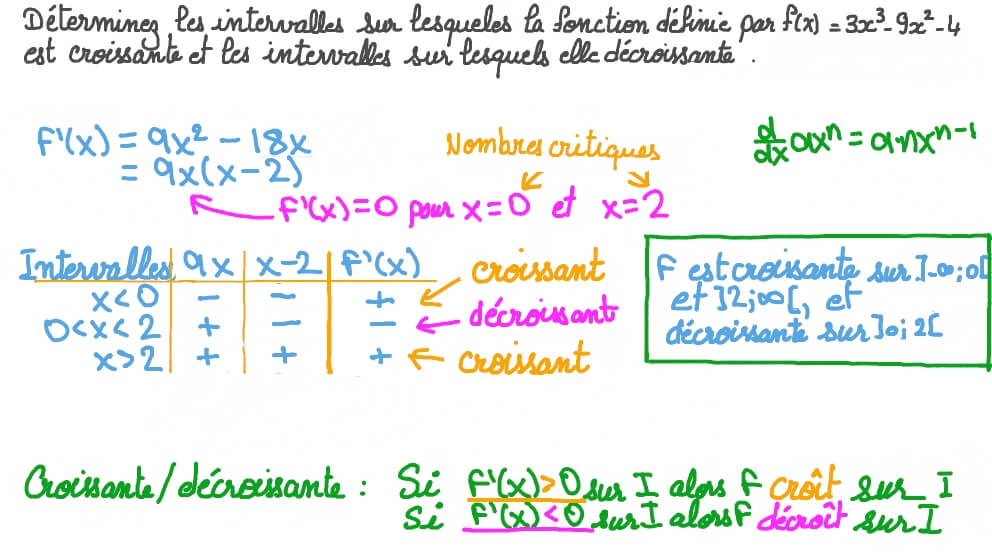 Déterminez les intervalles sur lesqueles la fonction définie par f(x) = 3x³-9x²-4
est croissante et les intervalles sur lesquels elle décroissante.
f'(x) = 9x² - 18x
= 9x(x-2)
Nombres critiques
d/dx axⁿ = a·nxⁿ⁻¹
f'(x)=0 pour x=0 et x=2
Intervalles 9x x-2 f'(x)
x<0 - - +
croissant
0<x<2 + - -
décroissant
x>2 + + +
croissant
f est croissante sur ]-∞;0[
et ]2;∞[, et
décroissante sur ]0;2[
Croissante/décroissante : Si f'(x)>0 sur I alors f croît sur I
Si f'(x)<0 sur I alors f décroît sur I